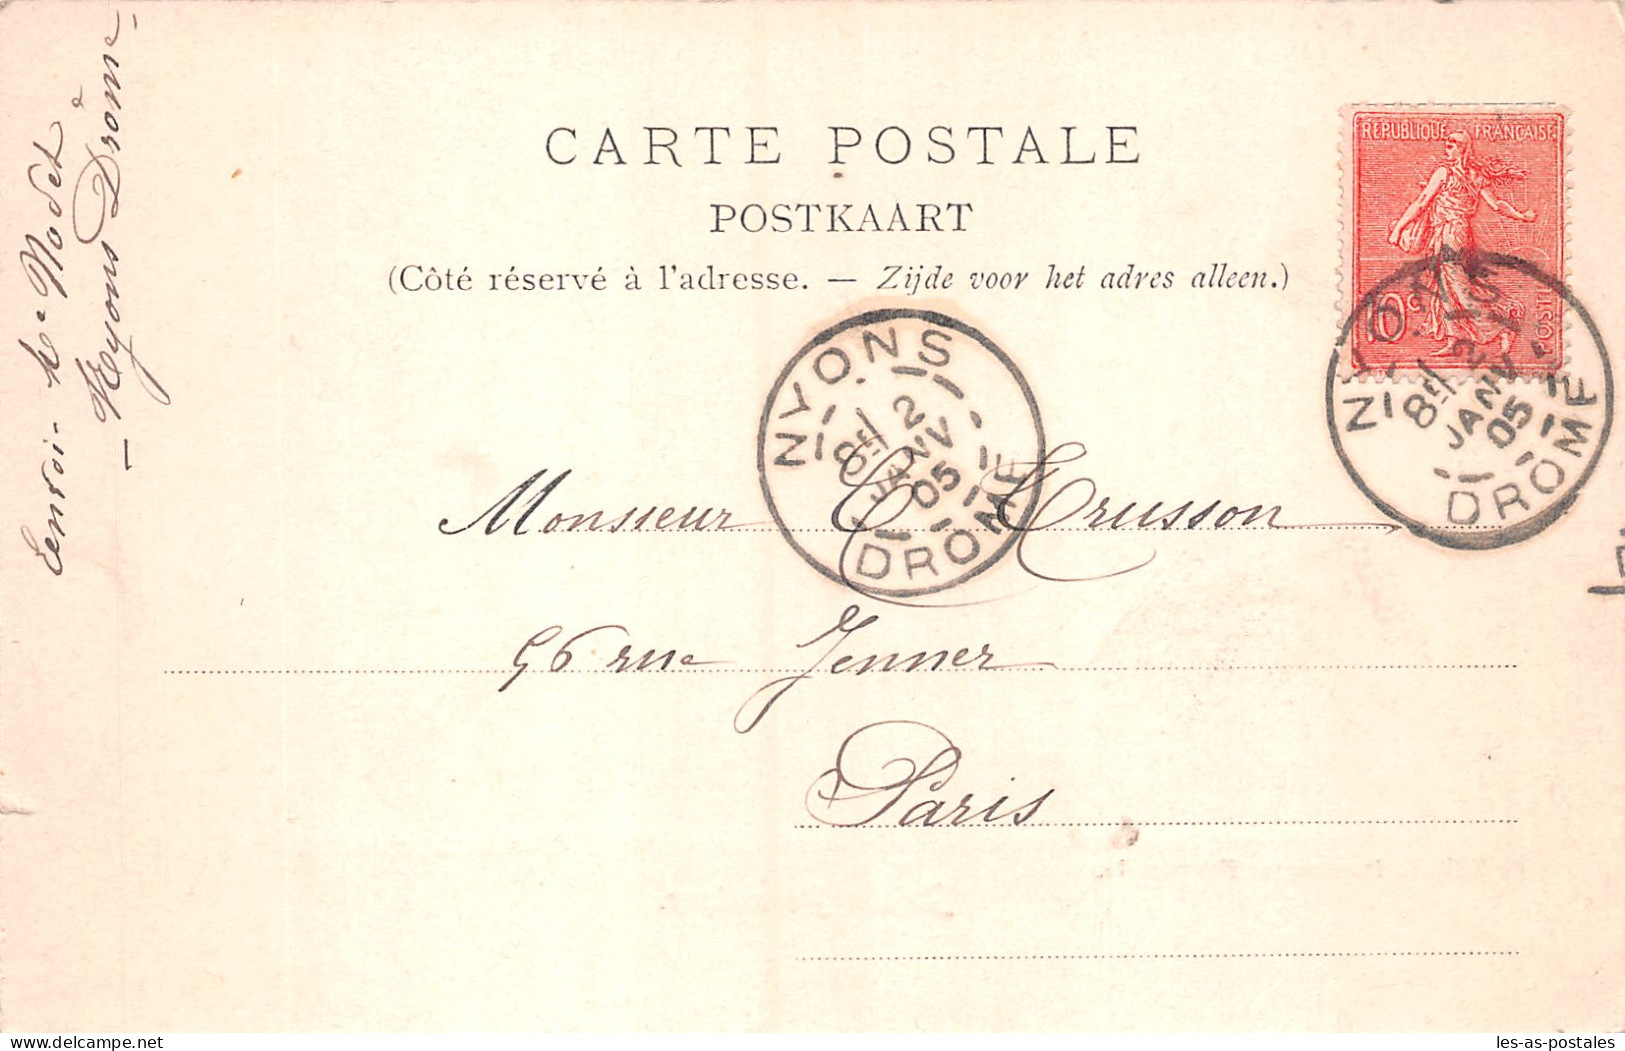 CARTE POSTALE
POSTKAART
(Côté réservé à l'adresse. — Zijde voor het adres alleen.)
REPUBLIQUE FRANÇAISE
10 c
POSTES
NYONS
8E/ 2
JANV
05
DROME
NYONS
8E/ 2
JANV
05
DROME
Monsieur C. Crusson
56 rue Jenner
Paris
Nyons Drôme
delcampe.net
les-as-postales